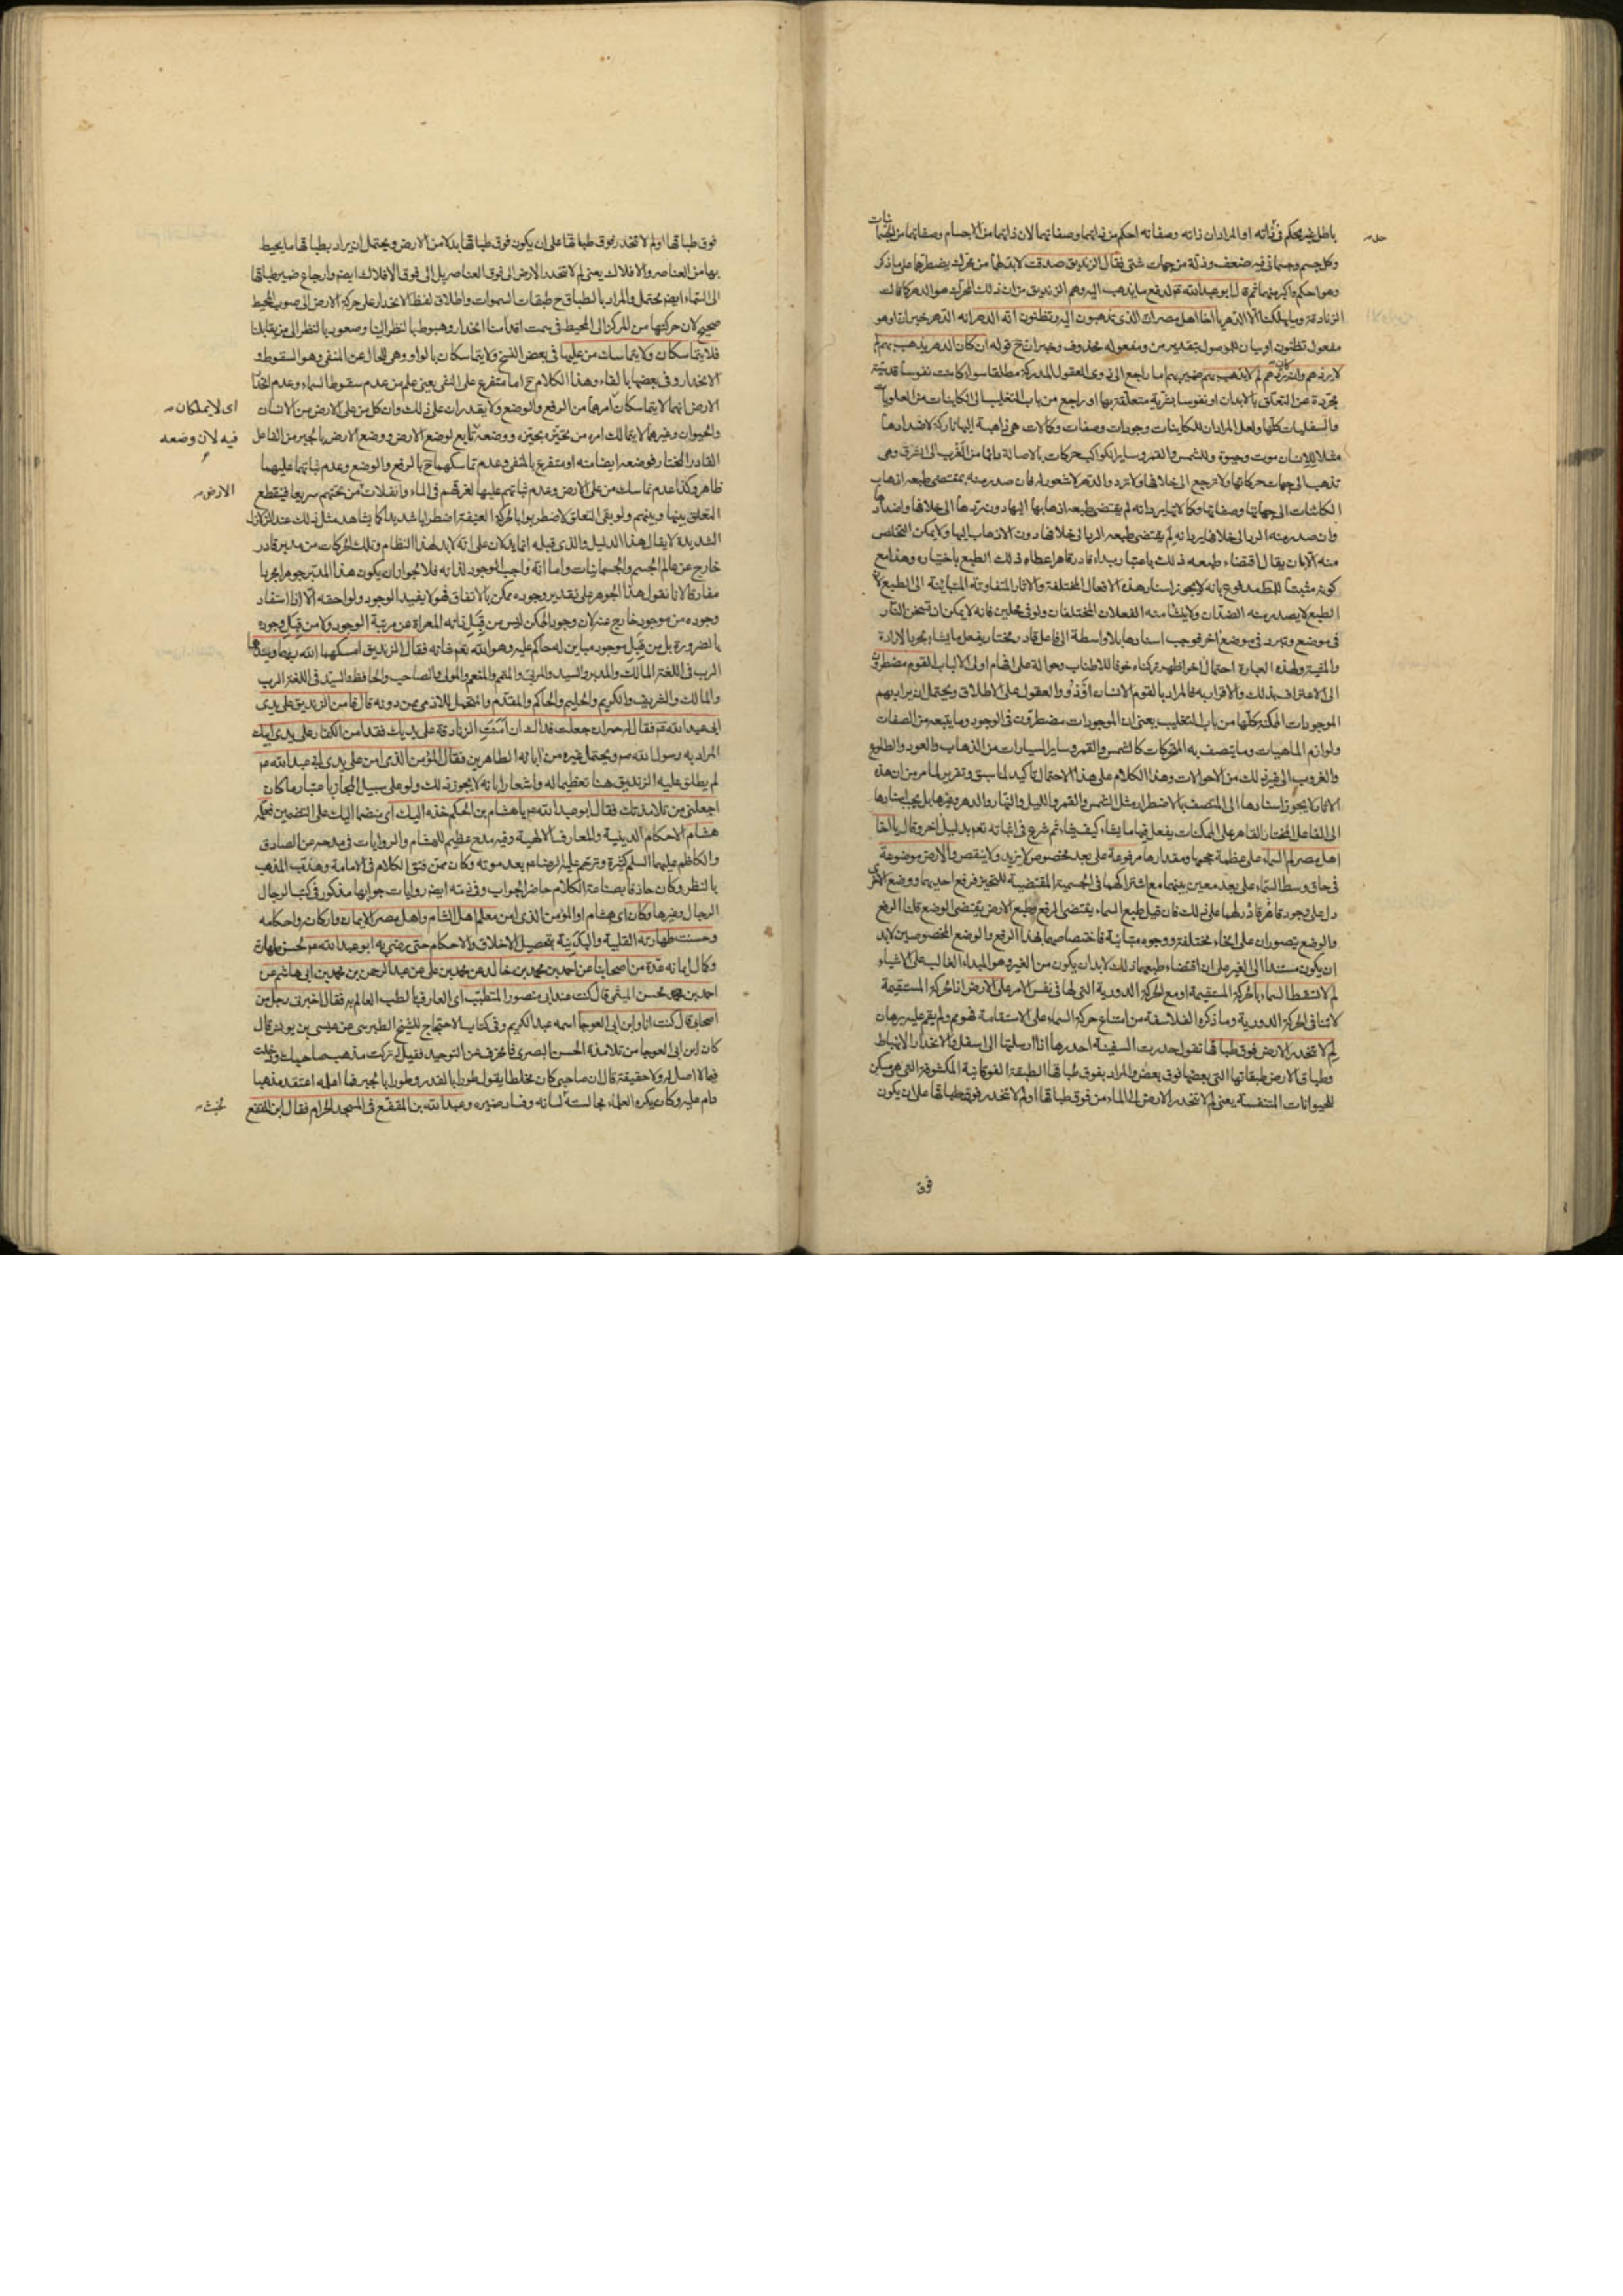 باطل غير محكم في ذاته او المراد ان ذاته وصفاته احكم من ذاتيهما وصفاتهما لان ذاتيهما من الاجسام وصفاتهما من الجسمانيات
وكل جسم وجسماني فيه ضعف وذلة من جهات شتى فقال الزنديق صدقت لابد لهما من محرك يضطرهما على ما ذكر
وهو احكم واكبر منهما ثم قال ابو عبد الله لدفع ما يذهب اليه وهم الزنديق من ان ذلك المحرك هو الدهر كما قالت
الزنادقة وما يهلكنا الا الدهر يا اخا اهل مصر ان الذي تذهبون اليه وتظنون انه الدهر انه الدهر خبر ان او هو
مفعول تظنون او بيان للموصول بتقدير من ومفعوله محذوف وخبر ان ح قوله ان كان الدهر يذهب بهم لم
لا يردهم وان كان يردهم لم لا يذهب بهم ضمير بهم اما راجع الى ذوي العقول المدركة مطلقا سواء كانت نفوسا قدسية
مجردة عن التعلق بالابدان او نفوسا بشرية متعلقة بها او راجع من باب التغليب الى الكاينات من العلويات
والسفليات كلها ولعل المراد ان للكاينات وجودات وصفات وكمالات هي ذاهبة اليها تاركة لاضدادها
مثلا للانسان موت وحيوة وللشمس والقمر وساير الكواكب حركات بالاصالة دائما من المغرب الى المشرق وهي
تذهب الى جهات حركاتها ولا ترجع الى خلافها ولا ترد والدهر لا شعور له فان صدر منه بمقتضى طبعه اذهاب
الكائنات الى جهاتها وصفاتها وكمالاتها يرد انه لم يقتضى طبعه اذهابها اليها دون ردها الى خلافها واضدادها
وان صدر منه الرد الى خلافها يرد انه لم يقتضى طبعه الرد الى خلافها دون الاذهاب اليها ولا يمكن التخلص
منه الا بان يقال اقتضاء طبعه ذلك باعتبار مبداء قادر قاهر اعطاه ذلك الطبع باختياره وهذا مع
كونه مثبتا للمط مدفوع بانه لا يجوز اسناد هذه الافعال المختلفة والاثار المتفاوتة المتباينة الى الطبع لان
الطبع لا يصدر منه الضدان ولا ينشا منه الفعلان المختلفان ولو في محلين فانه لا يمكن ان تسخن النار
في موضع وتبرد في موضع اخر فوجب اسنادها بلا واسطة الى فاعل قادر مختار يفعل ما يشاء بمجرد الارادة
والمشية ولهذه العبارة احتمال اخر اظهر تركناه خوفا للاطناب وحوالة على افهام اولى الالباب القوم مضطرون
الى الاعتراف بذلك والاقرار به فالمراد بالقوم الانسان او ذوو العقول على الاطلاق ويحتمل ان يراد بهم
الموجودات الممكنة كلها من باب التغليب يعني ان الموجودات مضطرون في الوجود وما يتبعه من الصفات
ولوازم الماهيات وما يتصف به المتحركات كالشمس والقمر وساير السيارات من الذهاب والعود والطلوع
والغروب الى غير ذلك من الاحوالات وهذا الكلام على هذا الاحتمال تاكيد لما سبق وتقرير لما مر من ان هذه
الاثار لا يجوز اسنادها الى المتصف بالاضطرار مثل الشمس والقمر والليل والنهار والدهر وغيرها بل يجب اسنادها
الى الفاعل المختار القاهر على الممكنات يفعل فيها ما يشاء كيف يشاء ثم شرع في اثباته تعم بدليل اخر وقال يا اخا
اهل مصر لم السماء على عظمة حجمها ومقدارها مرفوعة على بعد مخصوص لا يزيد ولا ينقص والارض موضوعة
في حاق وسط السماء على بعد معين بينهما مع اشتراكهما في الجسمية المقتضية للتحيز فرفع احديهما ووضع الاخرى
دل على وجود قاهر قادر لهما على ذلك فان قيل طبع السماء يقتضى الرفع وطبع الارض يقتضى الوضع قلنا الرفع
والوضع يتصوران على انحاء مختلفة ووجوه متباينة فاختصاصهما بهذا الرفع والوضع المخصوصين لابد
ان يكون مستندا الى الغير على ان اقتضاء طبعهما ذلك لابد ان يكون من الغير وهو المبداء الغالب على الاشياء
لم لا تسقط السماء بالحركة المستقيمة او مع الحركة الدورية التي لها في نفس الامر على الارض اذ الحركة المستقيمة
لا تنافي الحركة الدورية وما ذكره الفلاسفة من امتناع حركة السماء على الاستقامة فهو يم ولم يقم عليه برهان
لم لا تنحدر الارض فوق طباقها تقول حدرت السفينة احدرها اذا ارسلتها الى اسفل والانحدار الانهباط
وطباق الارض طبقاتها التي بعضها فوق بعض والمراد بفوق طباقها الطبقة الفوقانية المكشوفة التي هي مسكن
للحيوانات المتنفسة يعني لم لا تنحدر الارض الى الماء من فوق طباقها او لم لا تنحدر فوق طباقها على ان يكون
فوق
فوق طباقها او لم لا تنحدر فوق طباقها على ان يكون فوق طباقها بدلا من الارض ويحتمل ان يراد بطباقها ما يحيط
بها من العناصر والافلاك يعني لم لا تنحدر الارض الى فوق العناصر بل الى فوق الافلاك ايضا وارجاع ضمير طباقها
الى السماء ايضا محتمل والمراد بالطباق ح طبقات السموات واطلاق لفظ الانحدار على حركة الارض الى صوب المحيط
صحيح لان حركتها من المركز الى المحيط في سمت اقدامنا انحدار وهبوط بالنظر الينا وصعود بالنظر الى من يقابلنا
فلا يتماسكان ولا يتماسك من عليها في بعض النسخ ولا يتماسكان بالواو وهى للحال عن المنفي وهو السقوط و
الانحدار وفي بعضها بالفاء وهذا الكلام ح اما متفرع على النفي يعني علم من عدم سقوط السماء وعدم انحدار
الارض انهما لا يتماسكان امرهما من الرفع والوضع ولا يقدران على ذلك وان كل من على الارض من الانسان
اى لا يملكان
والحيوان وغيرهما لا يتمالك امره من تحيزه بحيزه ووضعه تابع لوضع الارض ووضع الارض بالجبر من الفاعل
فيه لان وضعه
القادر المختار فوضعه ايضا منه او متفرع بالمنفي وعدم تماسكهما ح بالرفع والوضع وعدم ثباتهما عليهما
ظاهر وكذا عدم تماسك من على الارض وعدم ثباتهم عليها لغرقهم في الماء وانفلات من تحتهم سريعا فينقطع
الارض
التعلق بينها وبينهم ولو بقى التعلق لاضطربوا بالحركة العنيفة اضطرابا شديدا كما يشاهد مثل ذلك عند الزلازل
الشديدة لا يقال هذا الدليل والذي قبله انما يدلان على انه لابد لهذا النظام وتلك الحركات من مدبر قادر
خارج عن عالم الجسم والجسمانيات واما انه واجب الوجود لذاته فلا لجواز ان يكون هذا المدبر جوهرا مجردا
مفارقا لانا نقول هذا الجوهر على تقدير وجوده ممكن بالاتفاق فهو لا يفيد الوجود ولواحقه الا اذا استفاد
وجوده من موجود خارج عنه لان وجود الممكن ليس من قبل ذاته المعراة عن مرتبة الوجود ولا من قبل وجوده
بالضرورة بل من قبل موجود مباين له حاكم عليه وهو الله تعم شانه فقال الزنديق امسكهما الله ربهما وسيدهما
الرب في اللغة المالك والمدبر والسيد والمربي والمتمم والمنعم والمولى والصاحب والحافظ والسيد في اللغة الرب
والمالك والشريف والكريم والحليم والحاكم والمقدم والمتحمل للاذى ممن دونه قال فامن الزنديق على يدى
ابى عبد الله عم فقال له حمران جعلت فداك ان آمنت الزنادقة على يديك فقد امن الكفار على يدى ابيك
المراد به رسول الله صم ويحتمل غيره من آبائه الطاهرين فقال المؤمن الذى امن على يدى ابى عبد الله عم
لم يطلق عليه الزنديق هنا تعظيما له واشعارا بانه لا يجوز ذلك ولو على سبيل المجاز باعتبار ما كان
اجعلنى من تلامذتك فقال ابو عبد الله عم يا هشام بن الحكم خذه اليك اى منضما اليك على التضمين فعلمه
هشام الاحكام الدينية والمعارف الالهية وفيه مدح عظيم لهشام والروايات في مدحه عن الصادق
والكاظم عليهما السلم كثيرة وترحم عليه الرضا عم بعد موته وكان ممن فتق الكلام في الامامة وهذب المذهب
بالنظر وكان حاذقا بصناعة الكلام حاضر الجواب وفي ذمه ايضا روايات جوابها مذكور في كتب الرجال
الرجال وغيرها وكان اى هشام او المؤمن الذى امن معلم اهل الشام واهل مصر الايمان واركانه واحكامه
وحسنت طهارته القلبية والبدنية بتحصيل الاخلاق والاحكام حتى رضى به ابو عبد الله عم لحسن طهارته
وكمال ايمانه عدة من اصحابنا عن احمد بن محمد بن خالد عن محمد بن على عن عبد الرحمن بن محمد بن ابى هاشم عن
احمد بن محسن الميثمى قال كنت عند ابى منصور المتطبب اى العارف بالطب العالم به فقال اخبرنى رجل من
اصحابى قال كنت انا وابن ابى العوجا اسمه عبد الكريم وفي كتاب الاحتجاج للشيخ الطبرسى عن عيسى بن يونس قال
كان ابن ابى العوجا من تلامذة الحسن البصرى فانحرف عن التوحيد فقيل له تركت مذهب صاحبك ودخلت
فيما لا اصل له ولا حقيقة قال ان صاحبى كان مخلطا يقول طورا بالقدر وطورا بالجبر فما اعلمه اعتقد مذهبا
دام عليه وكان يكره العلماء مجالسته لسانه وفساد ضميره وعبد الله بن المقفع في المسجد الحرام فقال ابن المقفع
لخبث